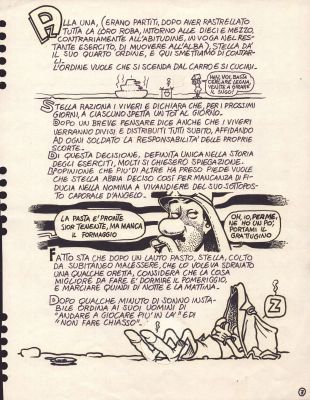 ALLA UNA, (ERANO PARTITI, DOPO AVER RASTRELLATO
TUTTA LA LORO ROBA, INTORNO ALLE DIECI E MEZZO,
CONTRARIAMENTE ALL'ABITUDINE, IN VOGA NEL RES-
TANTE ESERCITO, DI MUOVERE ALL'ALBA), STELLA DA'
IL SUO QUARTO ORDINE, E QUI SMETTIAMO DI CONTAR-
LI.
L'ORDINE VUOLE CHE SI SCENDA DAL CARRO E SI CUCINI.
STELLA RAZIONA I VIVERI E DICHIARA CHE, PER I PROSSIMI
GIORNI, A CIASCUNO SPETTA UN TOT AL GIORNO.
DOPO UN BREVE PENSARE DICE ANCHE CHE I VIVERI
VERRANNO DIVISI E DISTRIBUITI TUTTI SUBITO, AFFIDANDO
AD OGNI SOLDATO LA RESPONSABILITÀ DELLE PROPRIE
SCORTE.
DI QUESTA DECISIONE, DEFINITA UNICA NELLA STORIA
DEGLI ESERCITI, MOLTI SI CHIESERO SPIEGAZIONE.
L'OPINIONE CHE PIU' DI ALTRE HA PRESO PIEDE VUOLE
CHE STELLA ABBIA DECISO COSÌ PER MANCANZA DI FI-
DUCIA NELLA NOMINA A VIVANDIERE DEL SUO SOTTOPOS-
TO CAPORALE D'ANGELO.
LA PASTA E' PRONTA
SIOR TENENTE, MA MANCA
IL FORMAGGIO
OH, IO, PERME,
NE HO UN PO',
PORTAMI IL
GRATTUGINO
FATTO STA CHE DOPO UN LAUTO PASTO, STELLA, COLTO
DA SUBITANEO MALESSERE, CHE LO VOLEVA SDRAIATO
UNA QUALCHE ORETTA, CONSIDERA CHE LA COSA
MIGLIORE DA FARE E' DORMIRE IL POMERIGGIO,
E MARCIARE QUINDI DI NOTTE E LA MATTINA.
DOPO QUALCHE MINUTO DI SONNO INSTA-
BILE ORDINA AI SUOI UOMINI DI
"ANDARE A GIOCARE PIU' IN LA'" E DI
"NON FARE CHIASSO".
Z